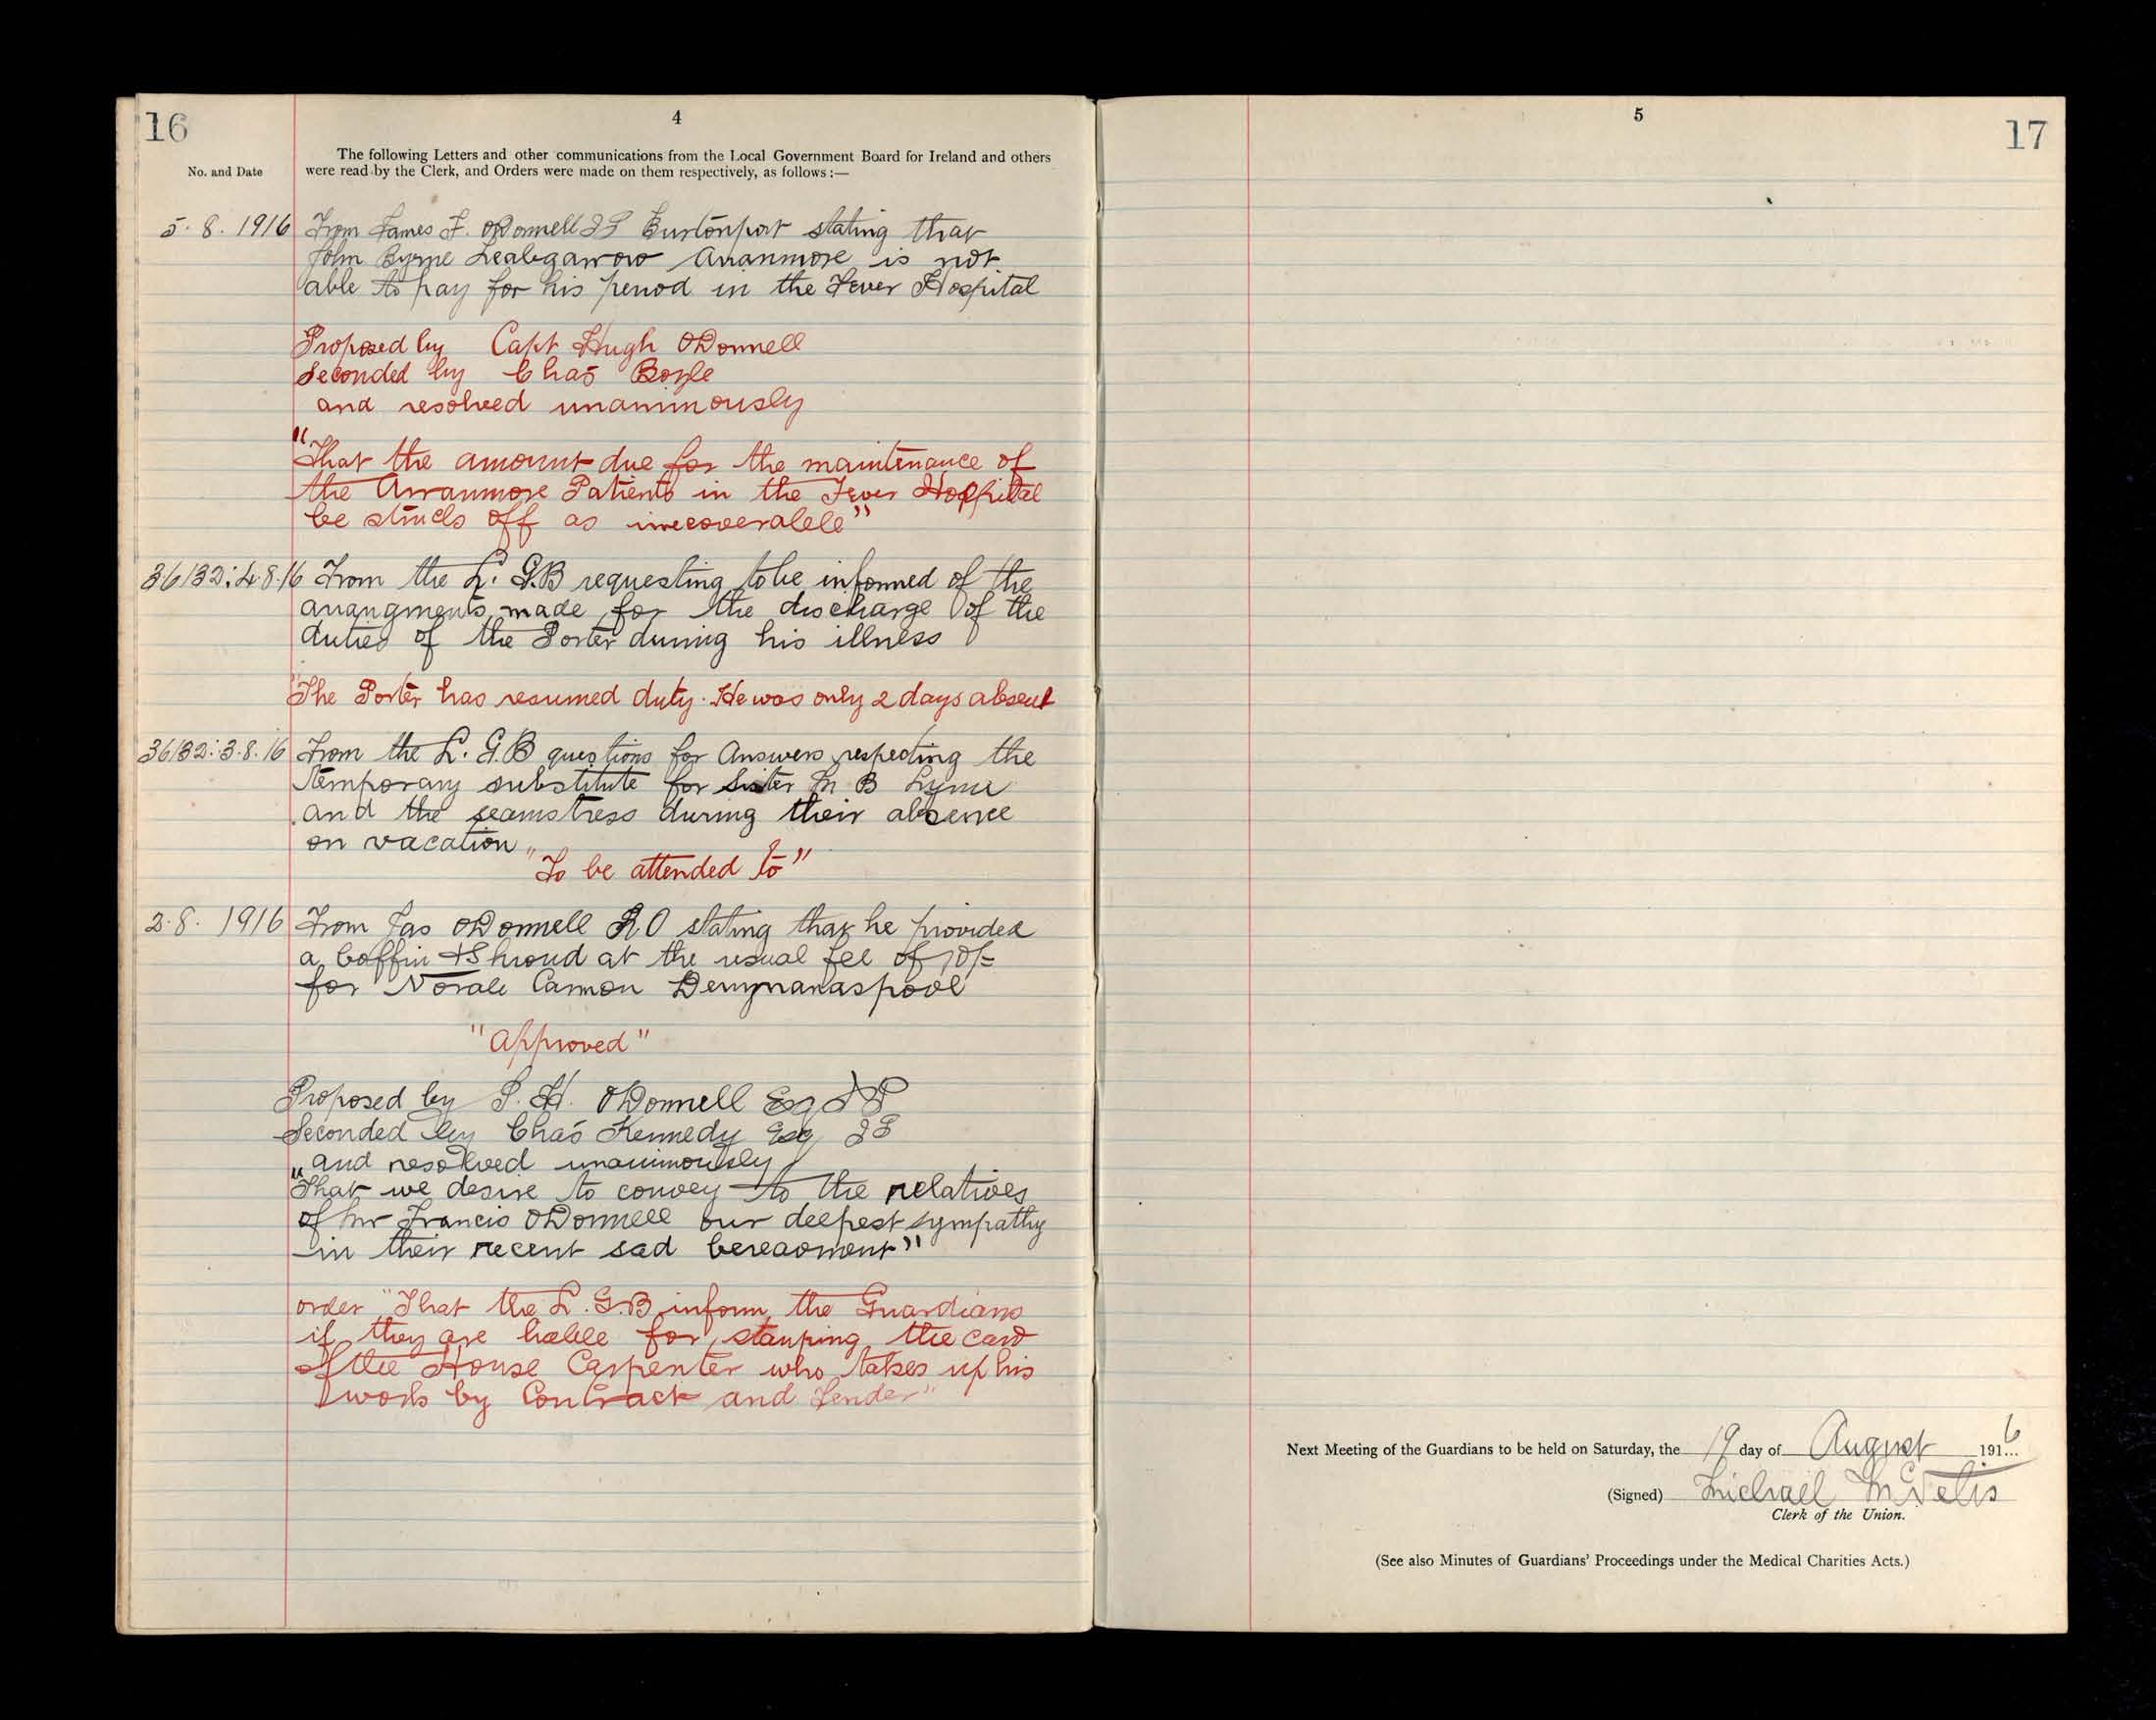 16
4
The following Letters and other communications from the Local Government Board for Ireland and others
No. and Date were read by the Clerk, and Orders were made on them respectively, as follows :—
5. 8. 1916 From James F. ODonnell JP Burtonport stating that
John Byrne Leabgarrow Arranmore is not
able to pay for his period in the Fever Hospital
Proposed by Capt Hugh ODonnell
Seconded by Chas Boyle
and resolved unanimously
"That the amount due for the maintenance of
the Arranmore Patients in the Fever Hospital
be struck off as irrecoverable"
36132: 4.8.16 From the L. G.B requesting to be informed of the
arrangments made for the discharge of the
duties of the Porter during his illness
"The Porter has resumed duty. He was only 2 days absent
36132: 3.8.16 From the L. G.B questions for Answers respecting the
temporary substitute for Sister M B
and the seamstress during their absence
on vacation
"To be attended to"
2.8. 1916 From Jas ODonnell R.O stating that he provided
a Coffin & Shroud at the usual fee of 10/=
for Cannon
"Approved"
Proposed by P. H. ODonnell Esq JP
Seconded by Chas Kennedy Esq JP
and resolved unanimously
"That we desire to convey to the relatives
of Mr Francis ODonnell our deepest sympathy
in their recent sad bereavment"
order "That the L. G.B inform the Guardians
if they are liable for stamping the card
of the House Carpenter who takes up his
work by Contract and Tender"
5
17
Next Meeting of the Guardians to be held on Saturday, the 19 day of August 1916
(Signed) Michael McNelis
Clerk of the Union.
(See also Minutes of Guardians' Proceedings under the Medical Charities Acts.)